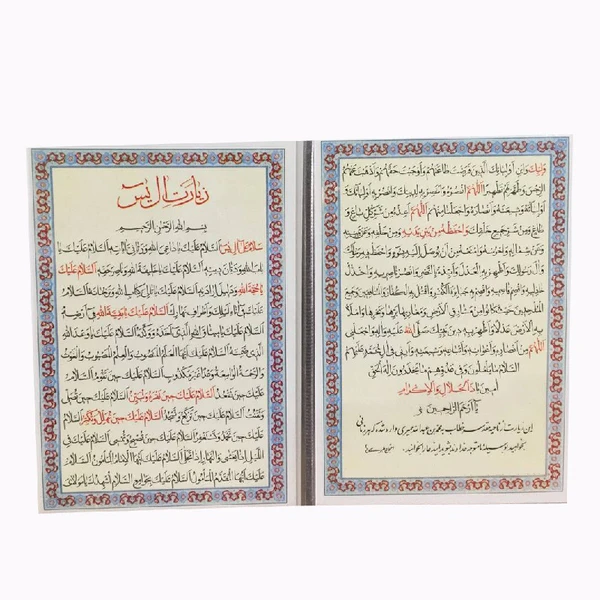 زیارت آل یس
بسم الله الرحمن الرحیم
سلام علی آل یس السلام علیک یا داعی الله وربانی آیاته السلام علیک یا
باب الله ودیان دینه السلام علیک یا خلیفة الله وناصر حقه السلام علیک
یا حجة الله ودلیل ارادته السلام علیک یا تالی کتاب الله وترجمانه السلام
علیک فی آناء لیلک واطراف نهارک السلام علیک یا بقیة الله فی ارضه
السلام علیک یا میثاق الله الذی اخذه ووکده السلام علیک یا وعد الله
الذی ضمنه السلام علیک ایها العلم المنصوب والعلم المصبوب والغوث
والرحمة الواسعة وعدا غیر مکذوب السلام علیک حین تقوم السلام
علیک حین تقعد السلام علیک حین تقرء وتبین السلام علیک حین تصلی
وتقنت السلام علیک حین ترکع وتسجد السلام علیک حین تهلل وتکبر السلام
علیک حین تحمد وتستغفر السلام علیک حین تصبح وتمسی السلام علیک فی
اللیل اذا یغشی والنهار اذا تجلی السلام علیک ایها الامام المأمون السلام
علیک ایها المقدم المأمول السلام علیک بجوامع السلام
ولیک وابن اولیائک الذین فرضت طاعتهم واوجبت حقهم واذهبت عنهم
الرجس وطهرتهم تطهیرا اللهم انصره وانتصر به لدینک وانصر به اولیائک
اولیائه وشیعته وانصاره واجعلنا منهم اللهم اعذه من شر کل باغ و
طاغ ومن شر جمیع خلقک واحفظه من بین یدیه ومن خلفه وعن یمینه
وعن شماله واحرسه وامنعه من ان یوصل الیه بسوء واحفظ فیه رسولک
وآل رسولک واظهر به العدل وایده بالنصر وانصر ناصریه واخذل
خاذلیه واقصم قاصمیه واقصم به جبابرة الکفر واقتل به الکفار والمنافقین وجمیع
الملحدین حیث کانوا من مشارق الارض ومغاربها برها وبحرها واملأ
به الارض عدلا واظهر به دین نبیک صلی الله علیه وآله واجعلنی
اللهم من انصاره واعوانه واتباعه وشیعته وارنی فی آل محمد علیهم
السلام ما یأملون وفی عدوهم ما یحذرون اله الحق
آمین یا ذا الجلال والاکرام
یا ارحم الراحمین